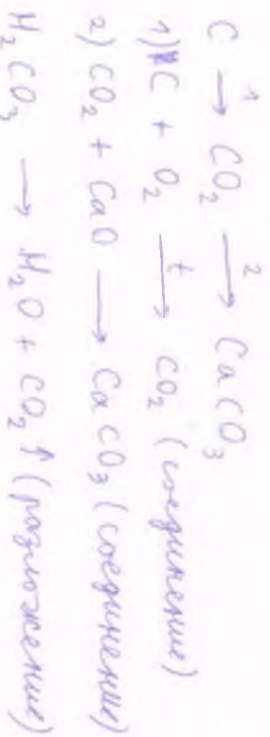 C →¹ CO₂ →² CaCO₃
1) C + O₂ →ᵗ CO₂ (соединение)
2) CO₂ + CaO → CaCO₃ (соединение)
H₂CO₃ → H₂O + CO₂↑ (разложение)